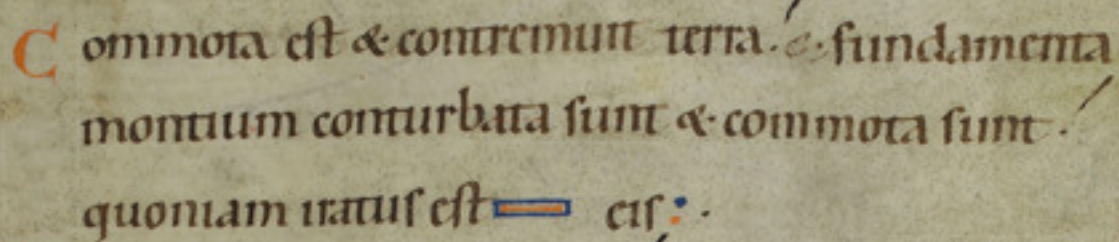 Commota est & contremuit terra. & fundamenta
montium conturbata sunt & commota sunt.
quoniam iratus est eis.